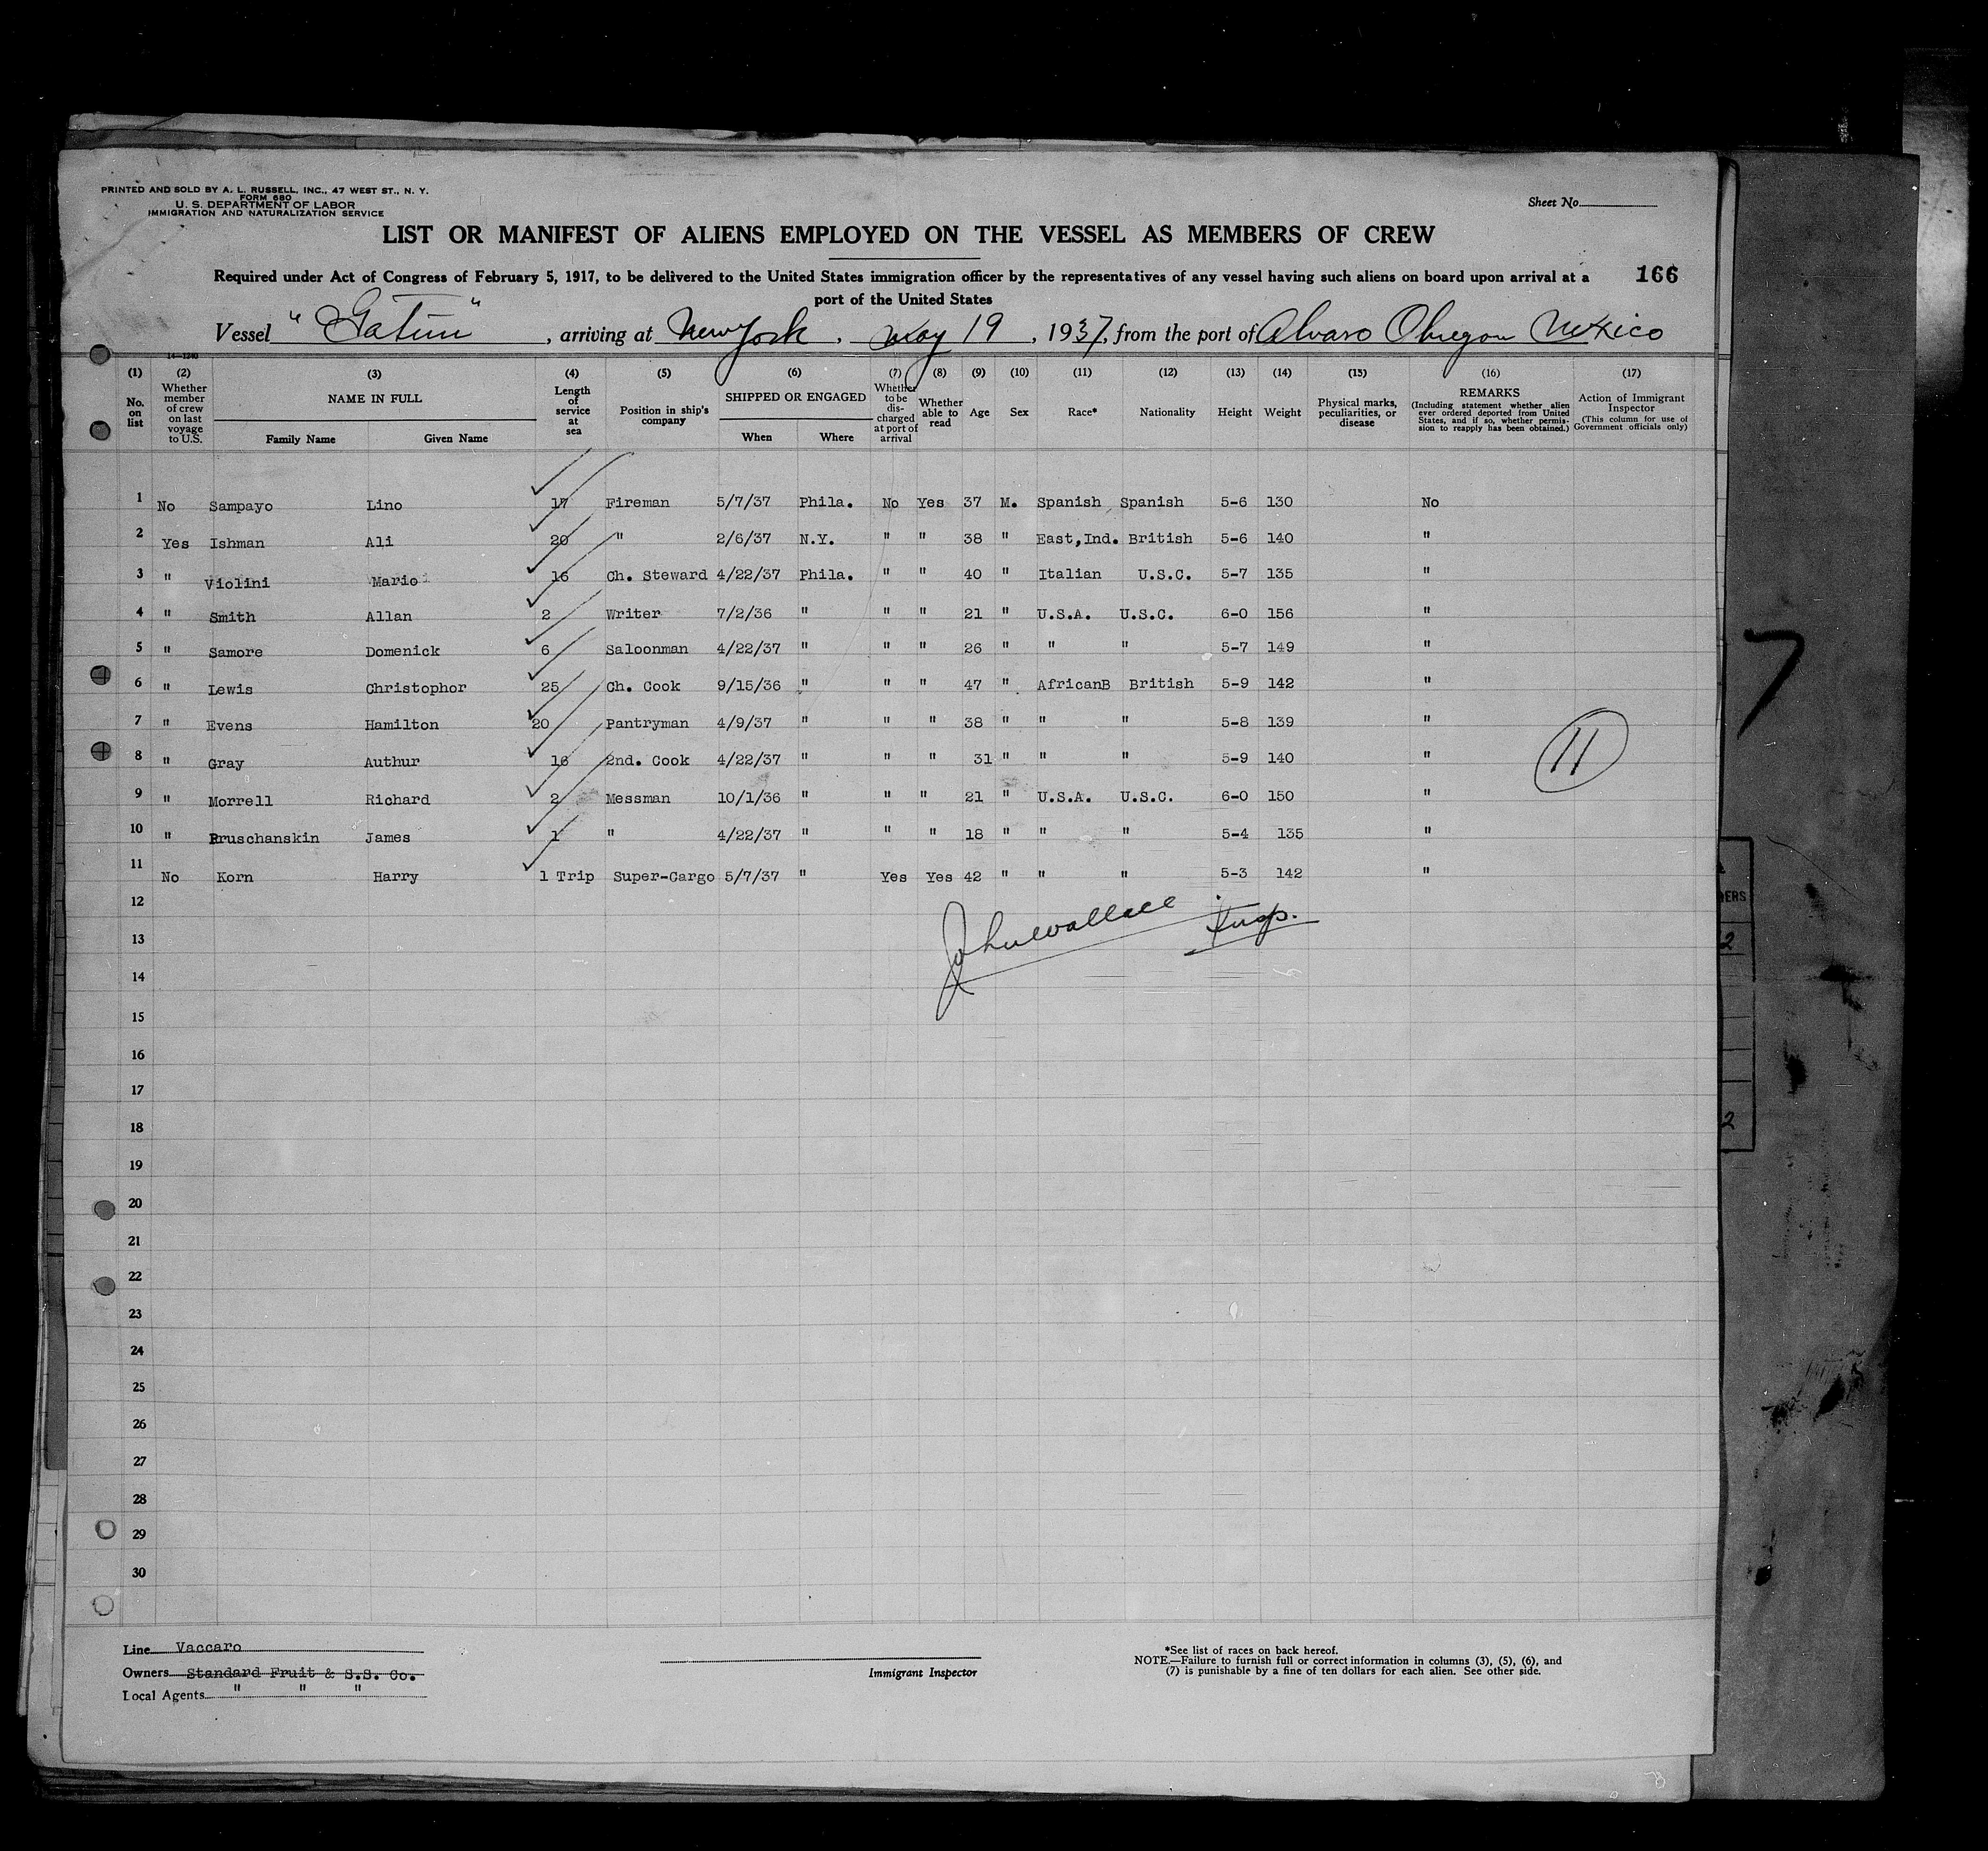 PRINTED AND SOLD BY A. L. RUSSELL, INC., 47 WEST ST., N. Y.
FORM 680
U. S. DEPARTMENT OF LABOR
IMMIGRATION AND NATURALIZATION SERVICE
Sheet No.
LIST OR MANIFEST OF ALIENS EMPLOYED ON THE VESSEL AS MEMBERS OF CREW
Required under Act of Congress of February 5, 1917, to be delivered to the United States immigration officer by the representatives of any vessel having such aliens on board upon arrival at a
port of the United States
166
Vessel "Gatun", arriving at New York, May 19, 1937, from the port of Alvaro Obregon Mexico
14-1240
(1) (2) (3) (4) (5) (6) (7) (8) (9) (10) (11) (12) (13) (14) (15) (16) (17)
No. on list
Whether member of crew on last voyage to U.S.
NAME IN FULL
Family Name Given Name
Length of service at sea
Position in ship's company
SHIPPED OR ENGAGED
When Where
Whether to be discharged at port of arrival
Whether able to read
Age Sex Race* Nationality Height Weight
Physical marks, peculiarities, or disease
REMARKS
(Including statement whether alien ever ordered deported from United States, and if so, whether permission to reapply has been obtained.)
Action of Immigrant Inspector
(This column for use of Government officials only)
1 No Sampayo Lino 17 Fireman 5/7/37 Phila. No Yes 37 M. Spanish Spanish 5-6 130 No
2 Yes Ishman Ali 20 " 2/6/37 N.Y. " " 38 " East,Ind. British 5-6 140 "
3 " Violini Mario 16 Ch. Steward 4/22/37 Phila. " " 40 " Italian U.S.C. 5-7 135 "
4 " Smith Allan 2 Writer 7/2/36 " " " 21 " U.S.A. U.S.C. 6-0 156 "
5 " Samore Domenick 6 Saloonman 4/22/37 " " " 26 " " " 5-7 149 "
6 " Lewis Christophor 25 Ch. Cook 9/15/36 " " " 47 " AfricanB British 5-9 142 "
7 " Evens Hamilton 20 Pantryman 4/9/37 " " " 38 " " " 5-8 139 "
8 " Gray Authur 16 2nd. Cook 4/22/37 " " " 31 " " " 5-9 140 "
9 " Morrell Richard 2 Messman 10/1/36 " " " 21 " U.S.A. U.S.C. 6-0 150 "
10 " Pruschanskin James 1 " 4/22/37 " " " 18 " " " 5-4 135 "
11 No Korn Harry 1 Trip Super-Cargo 5/7/37 " Yes Yes 42 " " " 5-3 142 "
11
7
John Wallace Insp.
12
13
14
15
16
17
18
19
20
21
22
23
24
25
26
27
28
29
30
Line Vaccaro
Owners Standard Fruit & S.S. Co.
Local Agents " " "
Immigrant Inspector
*See list of races on back hereof.
NOTE.—Failure to furnish full or correct information in columns (3), (5), (6), and
(7) is punishable by a fine of ten dollars for each alien. See other side.